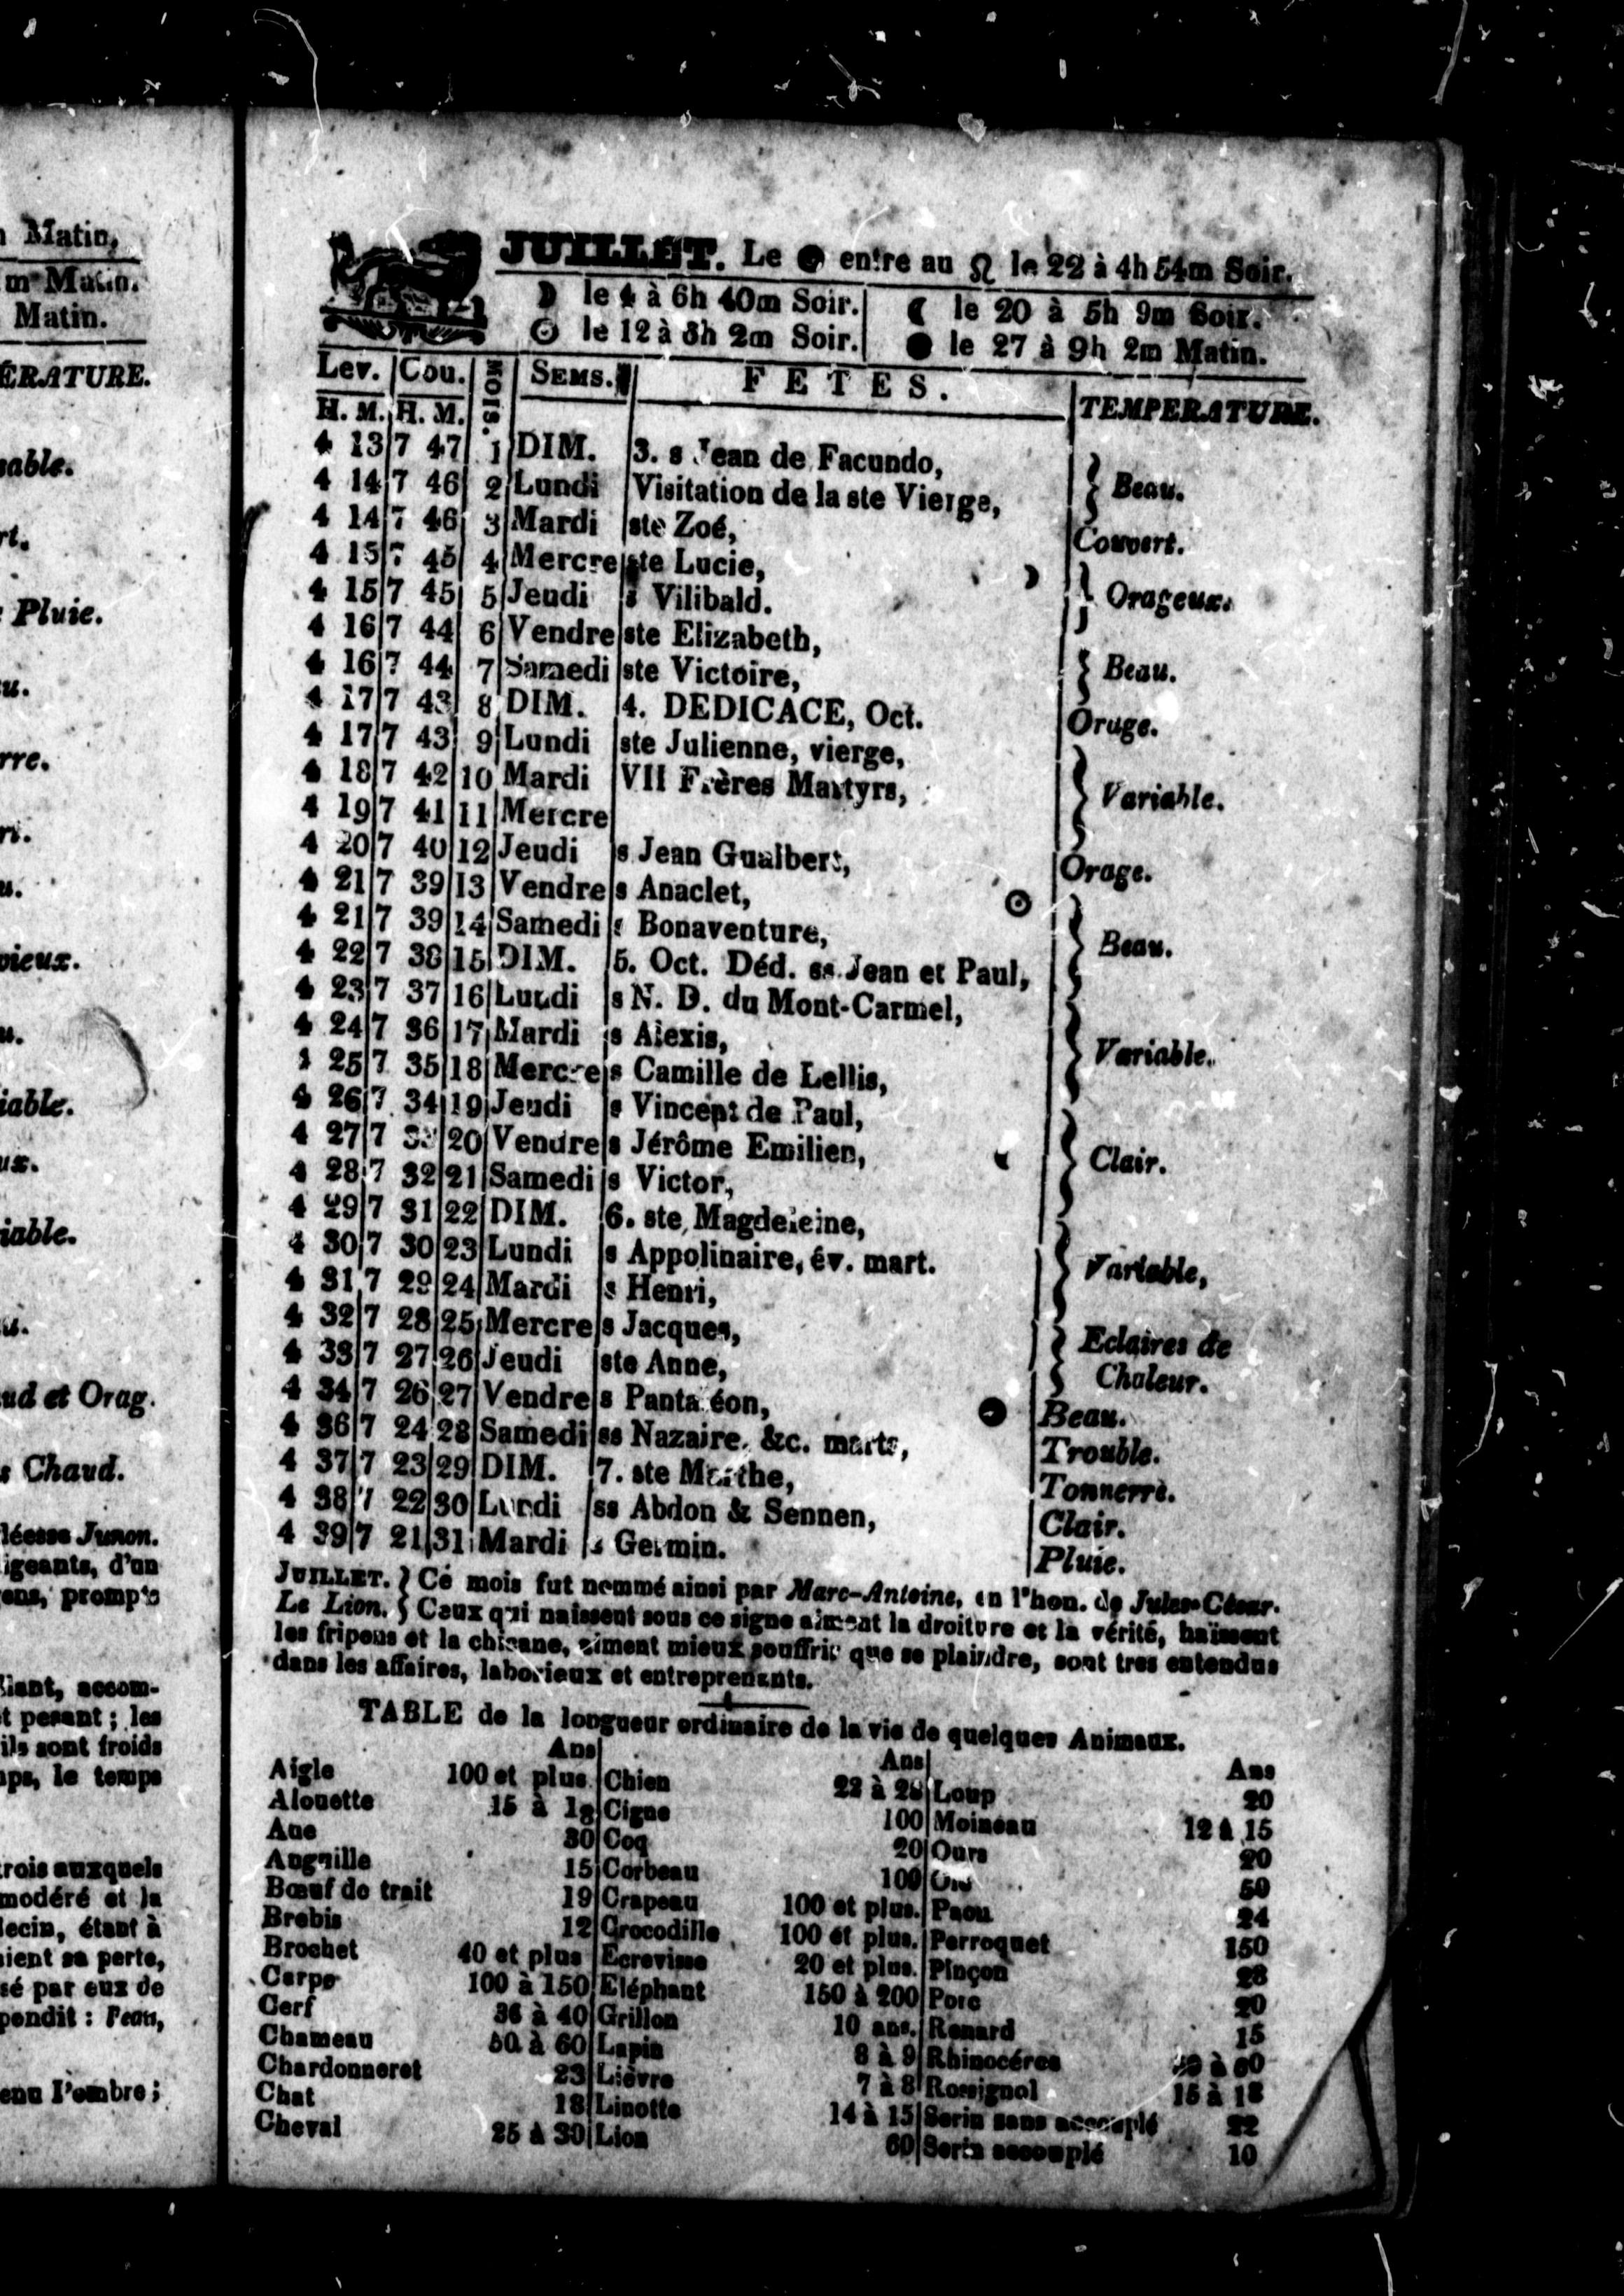 Matin,
m Matin.
Matin.
ÉRATURE.
able.
rt.
Pluie.
u.
rre.
ri.
u.
vieux.
u.
iable.
ux.
iable.
u.
ud et Orag.
s Chaud.
léesse Junon.
igeants, d'un
ens, prompts
liant, accom-
t pesant; les
ils sont froids
ps, le temps
rois auxquels
modéré et la
lecin, étant à
ient sa perte,
sé par eux de
pondit : Peau,
enu l'ombre;
JUILLET. Le entre au ♌ le 22 à 4h 54m Soir.
☽ le 4 à 6h 40m Soir. ☾ le 20 à 5h 9m Soir.
☉ le 12 à 3h 2m Soir. ● le 27 à 9h 2m Matin.
Lev. Cou. MOIS. SEMS. FETES. TEMPERATURE.
H. M. H. M.
4 13 7 47 1 DIM. 3. s Jean de Facundo,
4 14 7 46 2 Lundi Visitation de la ste Vierge, Beau.
4 14 7 46 3 Mardi ste Zoé, Couvert.
4 15 7 45 4 Mercre ste Lucie, ☽
4 15 7 45 5 Jeudi s Vilibald. Orageux.
4 16 7 44 6 Vendre ste Elizabeth,
4 16 7 44 7 Samedi ste Victoire, Beau.
4 17 7 43 8 DIM. 4. DEDICACE, Oct. Orage.
4 17 7 43 9 Lundi ste Julienne, vierge,
4 18 7 42 10 Mardi VII Frères Martyrs, Variable.
4 19 7 41 11 Mercre
4 20 7 40 12 Jeudi s Jean Gualbert, Orage.
4 21 7 39 13 Vendre s Anaclet, ☉
4 21 7 39 14 Samedi s Bonaventure, Beau.
4 22 7 38 15 DIM. 5. Oct. Déd. ss. Jean et Paul,
4 23 7 37 16 Lundi s N. D. du Mont-Carmel,
4 24 7 36 17 Mardi s Alexis, Variable.
4 25 7 35 18 Mercre s Camille de Lellis,
4 26 7 34 19 Jeudi s Vincent de Paul,
4 27 7 33 20 Vendre s Jérôme Emilien, ☾ Clair.
4 28 7 32 21 Samedi s Victor,
4 29 7 31 22 DIM. 6. ste Magdeleine,
4 30 7 30 23 Lundi s Appolinaire, év. mart. Variable,
4 31 7 29 24 Mardi s Henri,
4 32 7 28 25 Mercre s Jacques, Eclaires de
4 33 7 27 26 Jeudi ste Anne, Chaleur.
4 34 7 26 27 Vendre s Pantaléon, ● Beau.
4 36 7 24 28 Samedi ss Nazaire, &c. marts, Trouble.
4 37 7 23 29 DIM. 7. ste Marthe, Tonnerre.
4 38 7 22 30 Lundi ss Abdon & Sennen, Clair.
4 39 7 21 31 Mardi s Germin. Pluie.
JUILLET. } Ce mois fut nommé ainsi par Marc-Antoine, en l'hon. de Jules-César.
Le Lion. } Ceux qui naissent sous ce signe aiment la droiture et la vérité, haïssent
les fripons et la chicane, aiment mieux souffrir que se plaindre, sont tres entendus
dans les affaires, laborieux et entreprenants.
TABLE de la longueur ordinaire de la vie de quelques Animaux.
Ans Ans Ans
Aigle 100 et plus. Chien 22 à 28 Loup 20
Alouette 15 à 18 Cigne 100 Moineau 12 à 15
Ane 30 Coq 20 Ours 20
Anguille 15 Corbeau 100 Oie 50
Bœuf de trait 19 Crapeau 100 et plus. Paon 24
Brebis 12 Crocodille 100 et plus. Perroquet 150
Brochet 40 et plus Ecrevisse 20 et plus. Pinçon 28
Carpe 100 à 150 Eléphant 150 à 200 Porc 20
Cerf 36 à 40 Grillon 10 ans. Renard 15
Chameau 50 à 60 Lapin 8 à 9 Rhinocéres à 60
Chardonneret 23 Lièvre 7 à 8 Rossignol 15 à 18
Chat 18 Linotte 14 à 15 Serin sans accouplé 22
Cheval 25 à 30 Lion 60 Serin accouplé 10